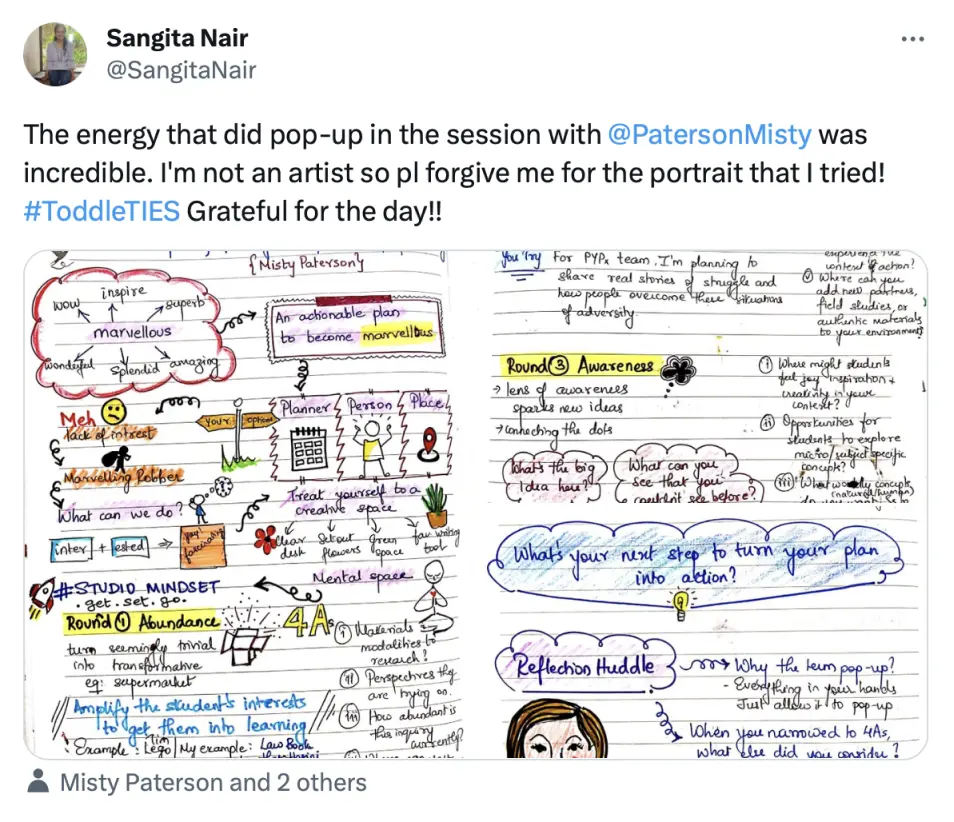 Sangita Nair
@SangitaNair
The energy that did pop-up in the session with @PatersonMisty was
incredible. I'm not an artist so pl forgive me for the portrait that I tried!
#ToddleTIES Grateful for the day!!
{Misty Paterson}
wow
inspire
superb
marvellous
wonderful
splendid
amazing
An actionable plan
to become marvellous
Meh
lack of interest
Marvelling Robber
What can we do?
inter + ested
YOUR OPTIONS
Planner
Person
Place
Treat yourself to a
creative space
clear
desk
Set out
flowers
Green
space
fav writing
tool
Mental space
#STUDIO MINDSET
.get.set.go.
Round 1 Abundance
4As
turn seemingly trivial
into transformative
eg: supermarket
Amplify the student's interests
to get them into learning
Example: Lego
My example: Law Book
i Materials
modalities to
research?
ii Perspectives they
are trying on.
iii How abundant is
this inquiry
currently?
You try for PYPx team, I'm planning to
share real stories of struggle and
how people overcome these situations
of adversity.
context & action?
Where can you
add new partners,
field studies, or
authentic materials
to your environment?
Round 3 Awareness
→ lens of awareness
sparks new ideas
→ connecting the dots
What's the big
Idea here?
What can you
see that you
couldn't see before?
i Where might students
feel joy, inspiration &
creativity in your
context?
ii Opportunities for
students to explore
micro/subject specific
concepts?
iii What concepts
(natural/human)
What's your next step to turn your plan
into action?
Reflection Huddle
Why the term pop-up?
- Everything in your hands
Just allow it to pop-up
When you narrowed to 4As,
what else did you consider?
Misty Paterson and 2 others